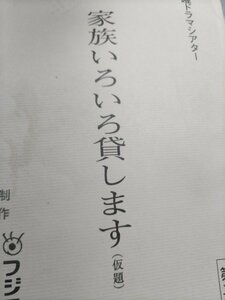 ドラマシアター
家族いろいろ貸します（仮題）
制作
フジ